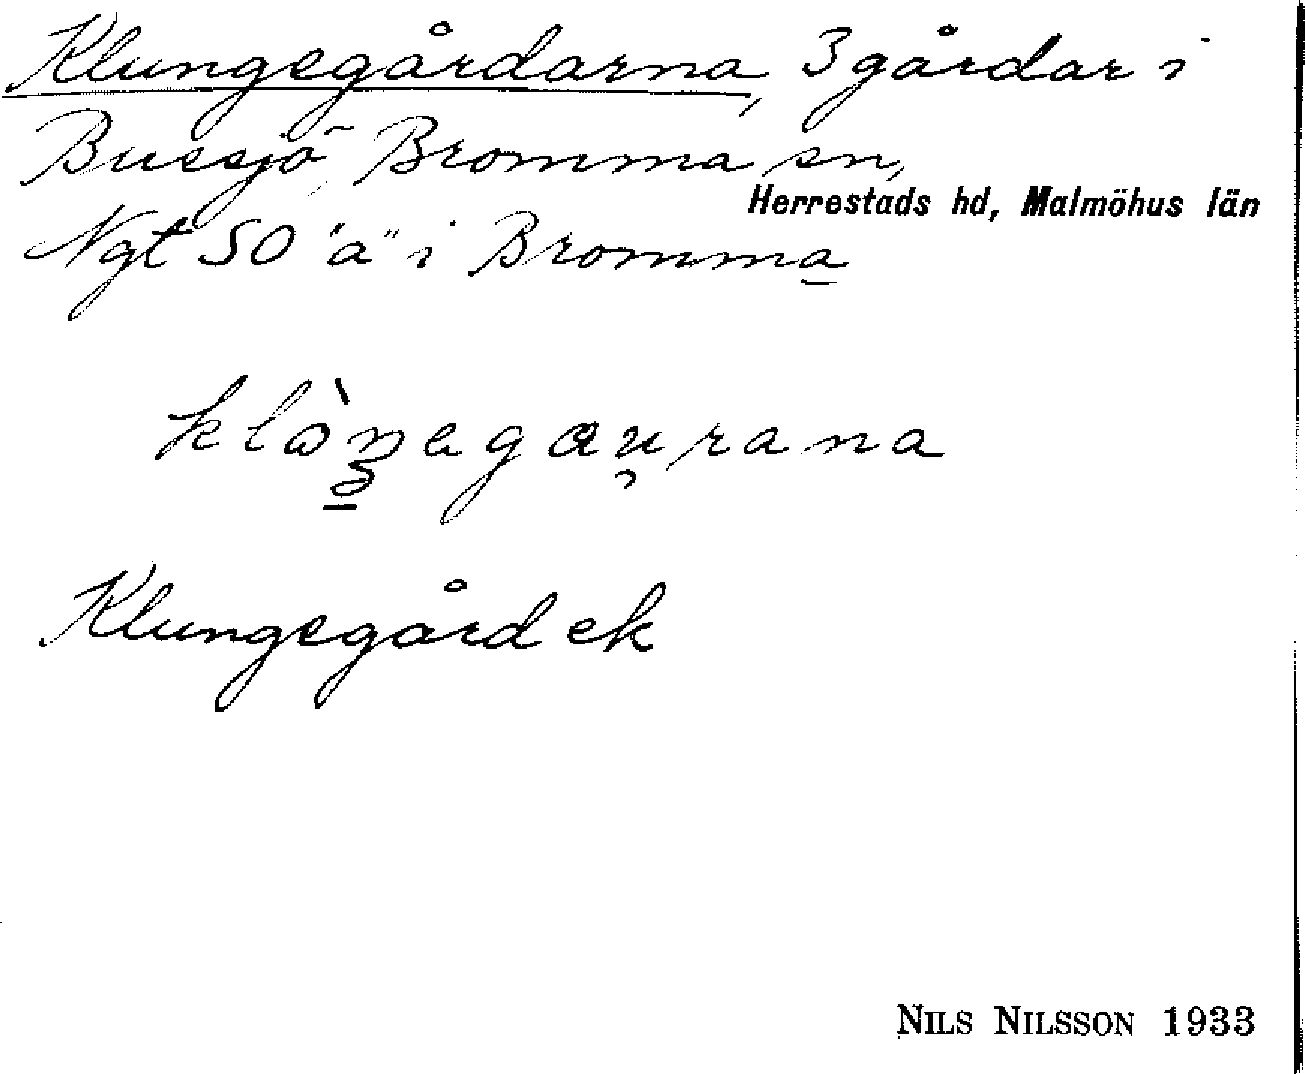 Klungsgårdarna, 3 gårdar i
Bussjö, Bromma sn,
Herrestads hd, Malmöhus län
Ngt SO "a" i Bromma
Klungsgård ek
NILS NILSSON 1933